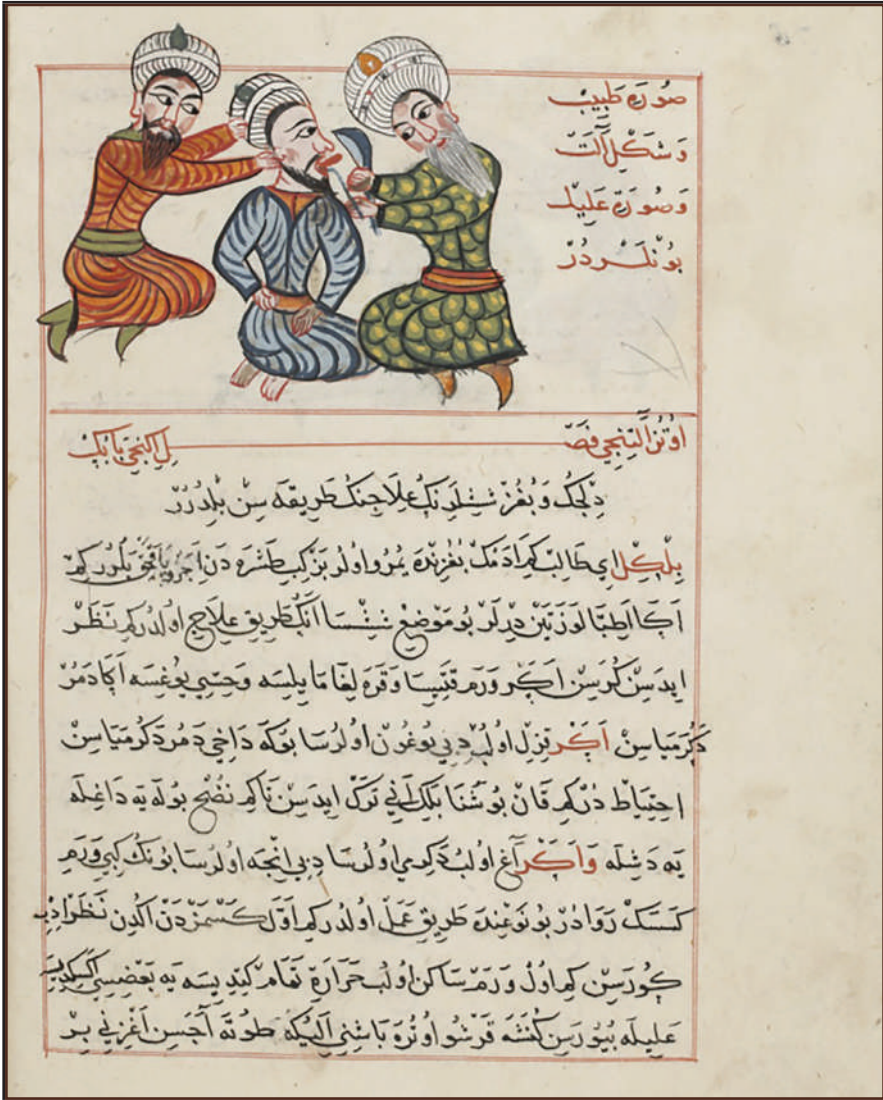 صورة طبيب
وشكل آلت
وصورة عليل
بونلردر
اوتز التنجي فصل
ايكنجي بابك
دلجك و بغز ششلرنك علاجنك طريقه سن بلدرر
بلكل اي طالب كم ادمك بغزنده يمرو اولور بز كبي طشره دن اجرو بلورر كم
اكا اطبا لوزتين ديرلر بو موضع ششسا انك طريق علاج اولدر كم نظر
ايدسن كورسن اكر ورم قتيسا و قره لغا مايلسه و حسي يوغسه اكا دمر
دكرمياسن اكر قزل اولب ديبي يوغون اولرسا بوكه داخي دمر دكرمياسن
احتياط در كم قان بوشنا بلكه اني ترك ايدسن تاكم نضج بوله يه داغله
يه دشله واكر آغ اولب دكري اولرسا ديبي انجه اولرسا بونك كبي ورم
كسمك روادر بو نوعنده طريق عمل اولدر كم اول كسمزدن اكدن نظر ادب
كورسن كم اول ورم ساكن اولب حرارة تمام كتديسه يه بعضسي اكسلديسه
عليله بيورسن كنشه قرشو اوتره باشني اليكه طوته آجسن اغزني بر